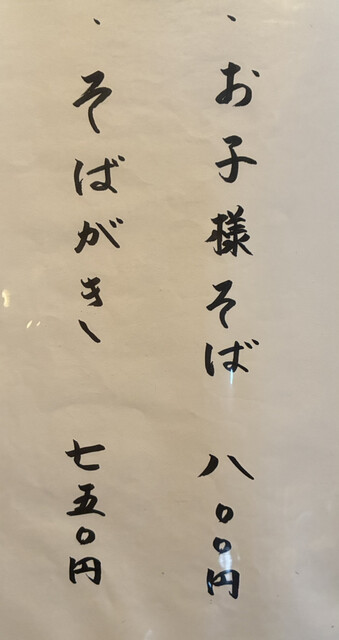 、お子様そば 八〇〇円
、そばがき 七五〇円